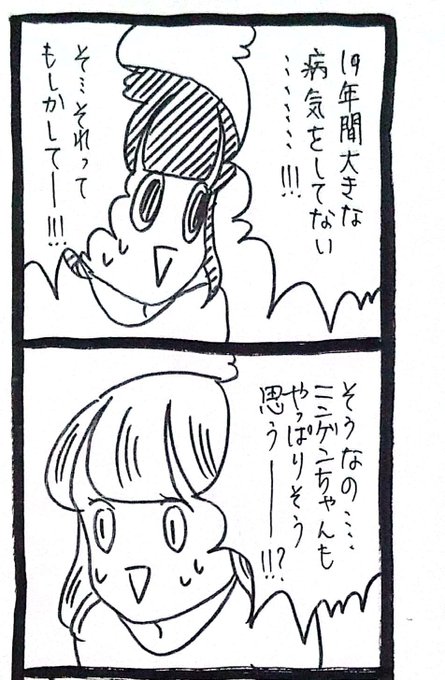 19年間大きな
病気をしてない
…………!!!
そ…それって
もしかしてー!!!
そうなの……
ニンゲンちゃんも
やっぱりそう
思うー!!?